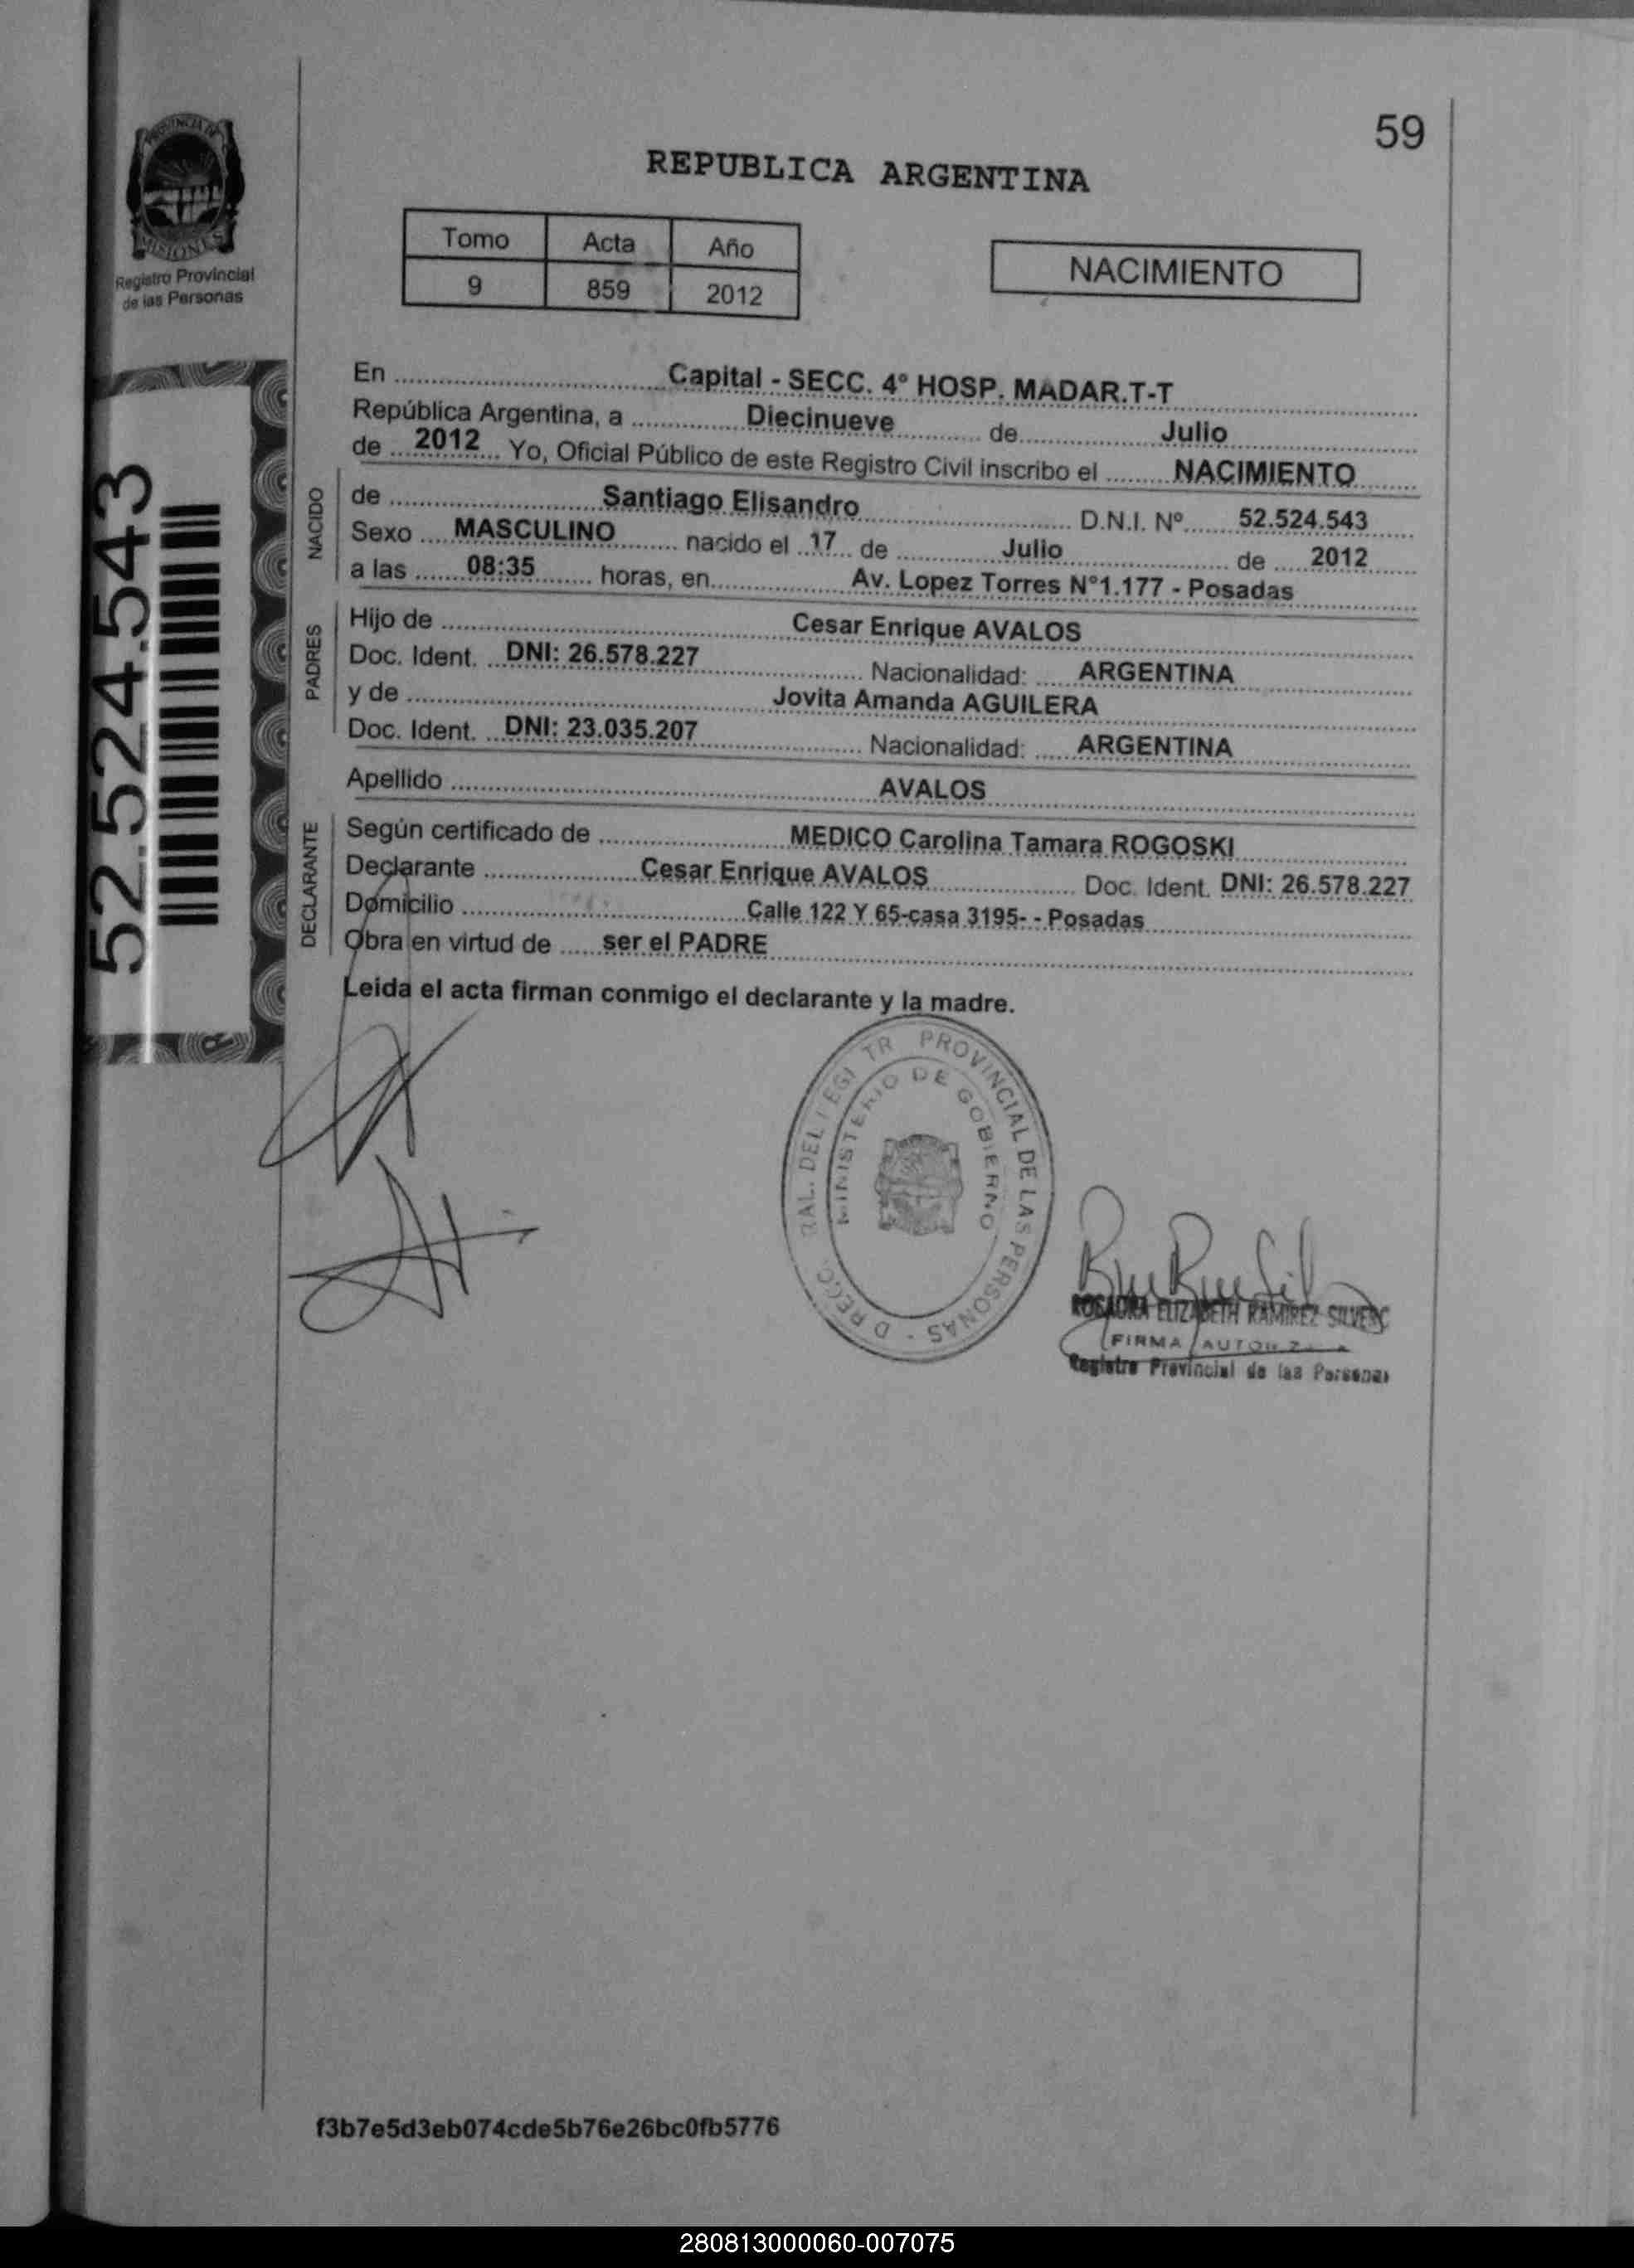 59
PROVINCIA DE
MISIONES
Registro Provincial
de las Personas
REPUBLICA ARGENTINA
Tomo Acta Año
9 859 2012
NACIMIENTO
52.524.543
En Capital - SECC. 4º HOSP. MADAR.T-T
República Argentina, a Diecinueve de Julio
de 2012 Yo, Oficial Público de este Registro Civil inscribo el NACIMIENTO
NACIDO
de Santiago Elisandro D.N.I. Nº 52.524.543
Sexo MASCULINO nacido el 17 de Julio de 2012
a las 08:35 horas, en Av. Lopez Torres N°1.177 - Posadas
PADRES
Hijo de Cesar Enrique AVALOS
Doc. Ident. DNI: 26.578.227 Nacionalidad: ARGENTINA
y de Jovita Amanda AGUILERA
Doc. Ident. DNI: 23.035.207 Nacionalidad: ARGENTINA
Apellido AVALOS
DECLARANTE
Según certificado de MEDICO Carolina Tamara ROGOSKI
Declarante Cesar Enrique AVALOS Doc. Ident. DNI: 26.578.227
Domicilio Calle 122 Y 65-casa 3195- - Posadas
Obra en virtud de ser el PADRE
Leída el acta firman conmigo el declarante y la madre.
PROVINCIAL DE LAS PERSONAS
MINISTERIO DE GOBIERNO
ELIZABETH RAMIREZ
FIRMA
Registro Provincial de las Personas
f3b7e5d3eb074cde5b76e26bc0fb5776
280813000060-007075